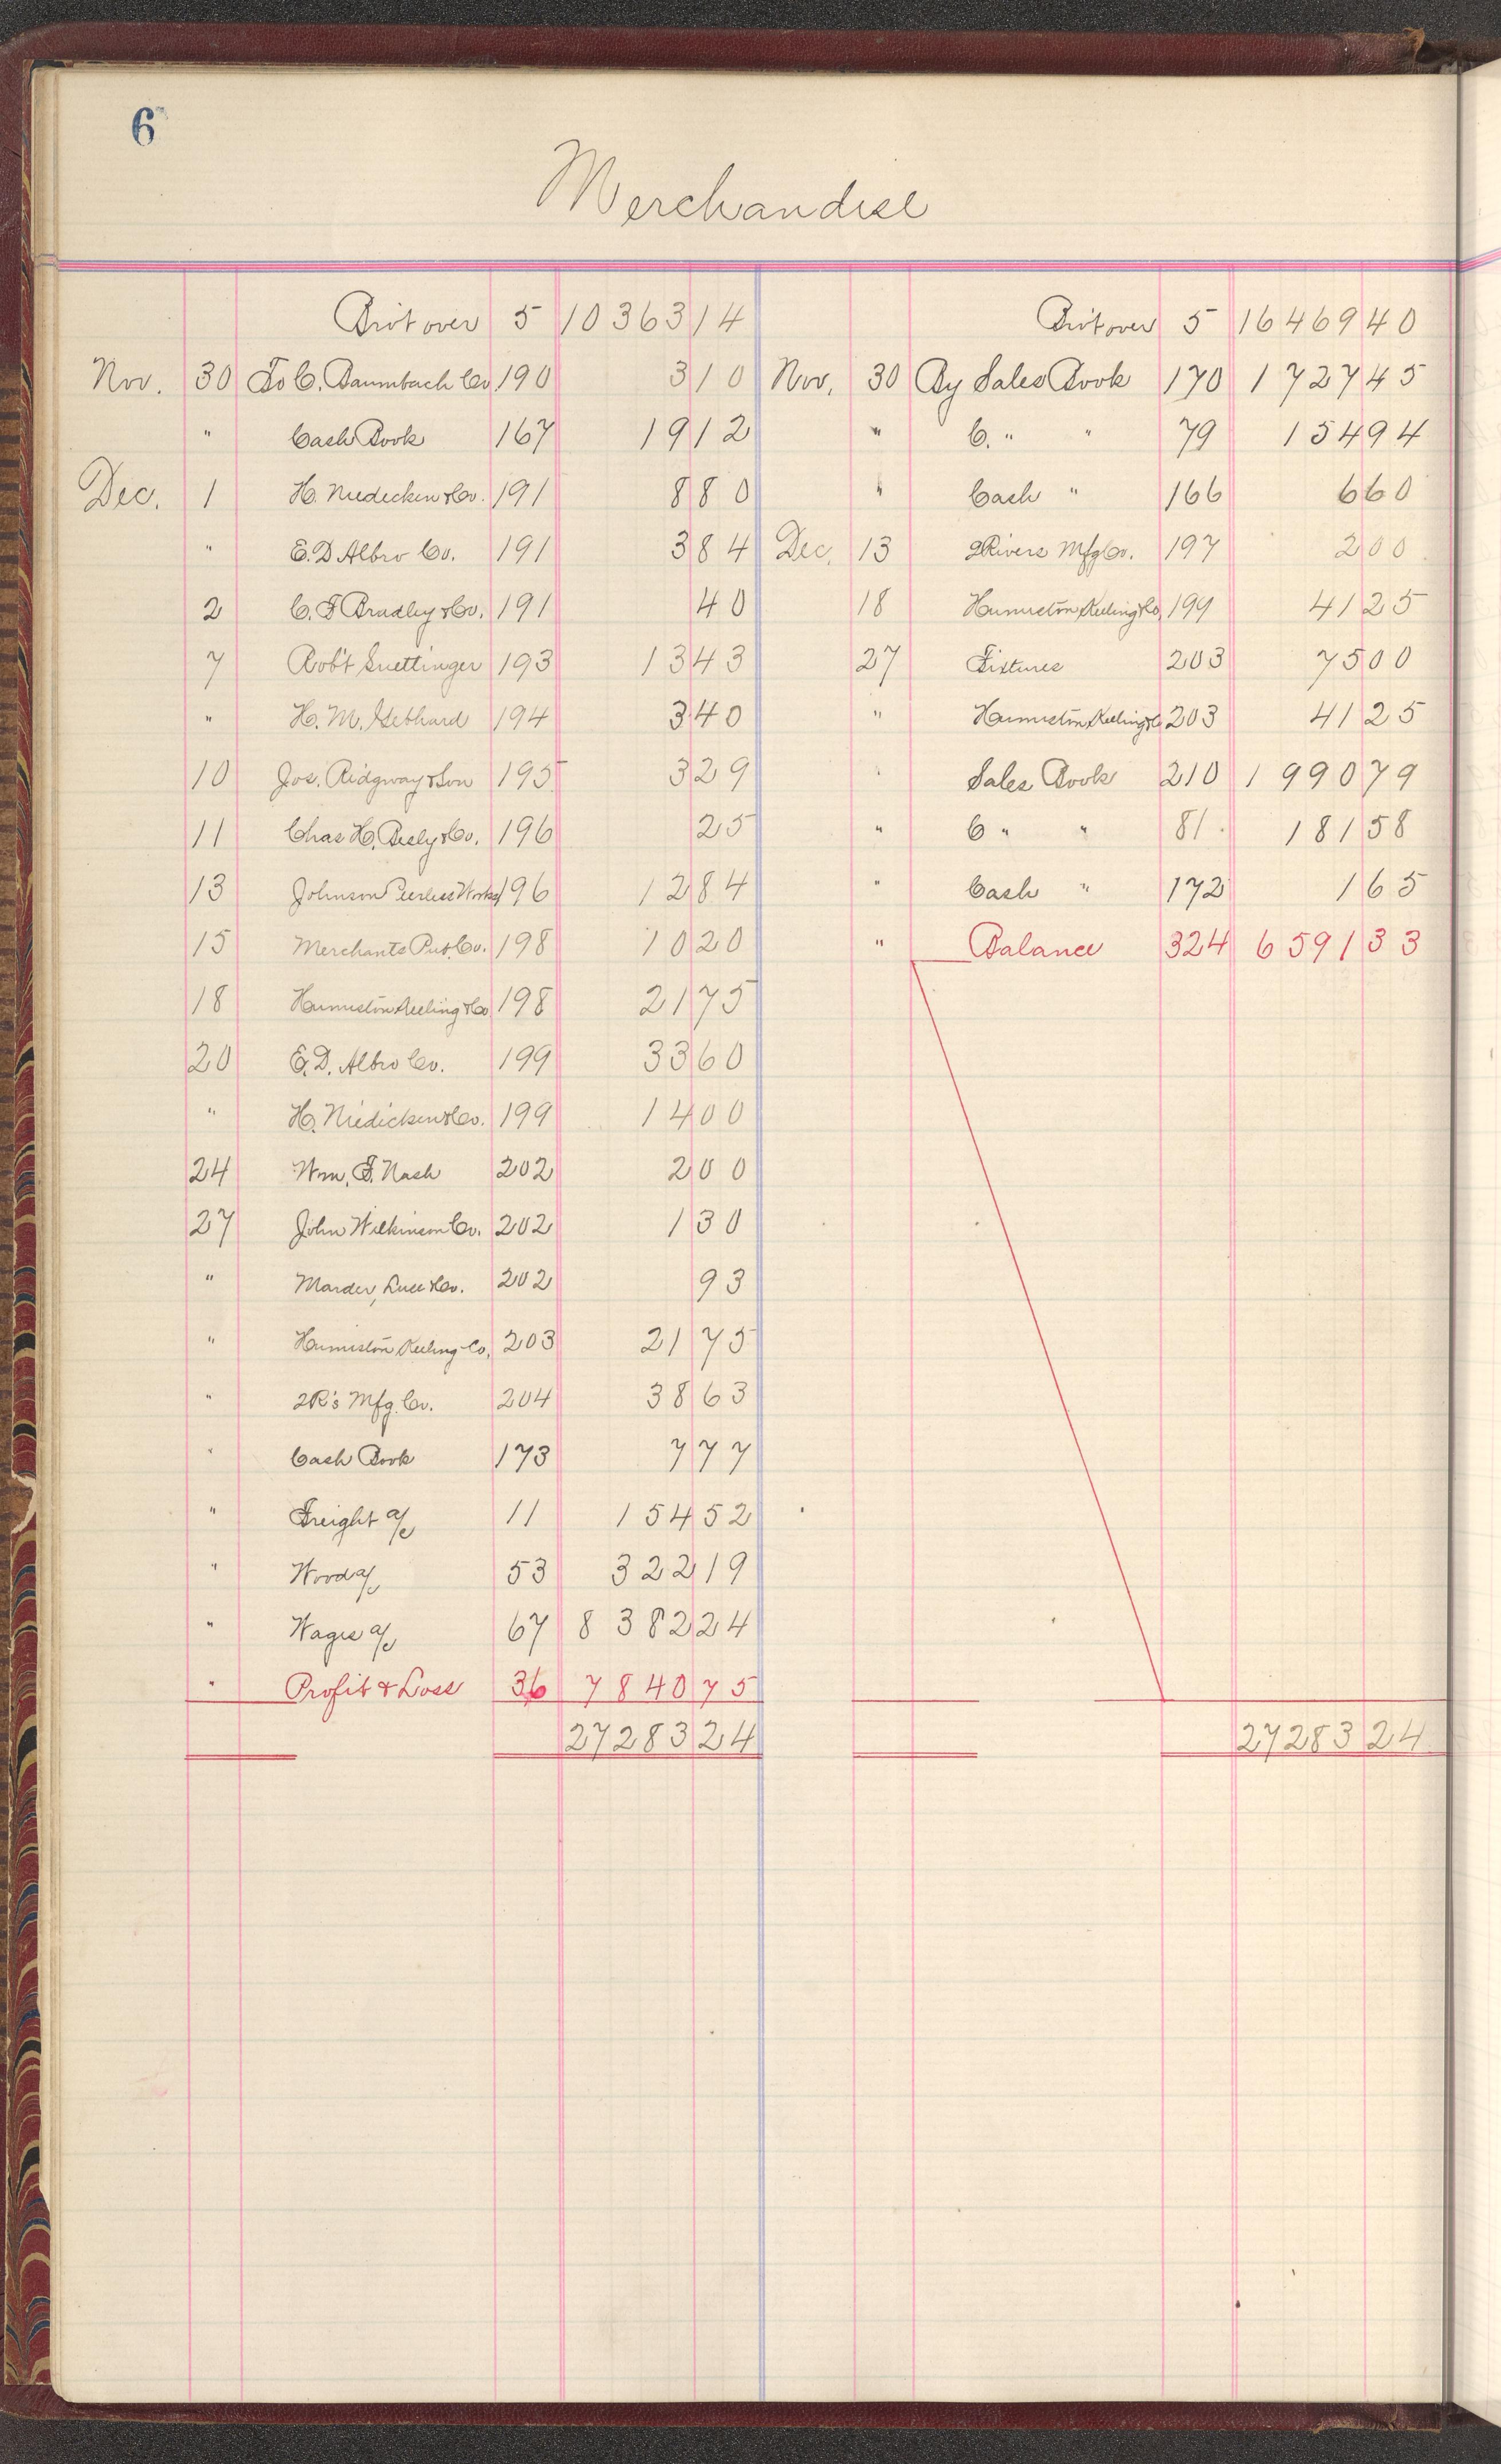 6
Merchandise
Bro't over 5 10363 14
Nov. 30 To C. Baumbach Co 190 3 10
" Cash Book 167 19 12
Dec. 1 H. Niedecken & Co. 191 8 80
" E. D. Albro Co. 191 3 84
2 C. F. Bradley & Co. 191 40
7 Rob't Suettinger 193 13 43
" H. M. Gebhard 194 3 40
10 Jos. Ridgway & Son 195 3 29
11 Chas H. Besly & Co. 196 25
13 Johnson Peerless Works 196 12 84
15 Merchants Pub. Co. 198 10 20
18 Humiston Keeling & Co 198 21 75
20 E. D. Albro Co. 199 33 60
" H. Niedicken & Co. 199 14 00
24 Wm. F. Nash 202 2 00
27 John Wilkinson Co. 202 1 30
" Marder, Luse & Co. 202 93
" Humiston Keeling Co. 203 21 75
" 2R's Mfg. Co. 204 38 63
" Cash Book 173 7 77
" Freight a/c 11 154 52
" Wood a/c 53 322 19
" Wages a/c 67 8382 24
" Profit & Loss 36 7840 75
27283 24
Bro't over 5 16469 40
Nov. 30 By Sales Book 170 1727 45
" C. " " 79 154 94
" Cash " 166 6 60
Dec. 13 2Rivers Mfg Co. 197 2 00
18 Humiston Keeling & Co. 199 41 25
27 Fixtures 203 75 00
" Humiston Keeling & Co 203 41 25
" Sales Book 210 1990 79
" C " " 81 181 58
" Cash " 172 1 65
" Balance 324 6591 33
27283 24